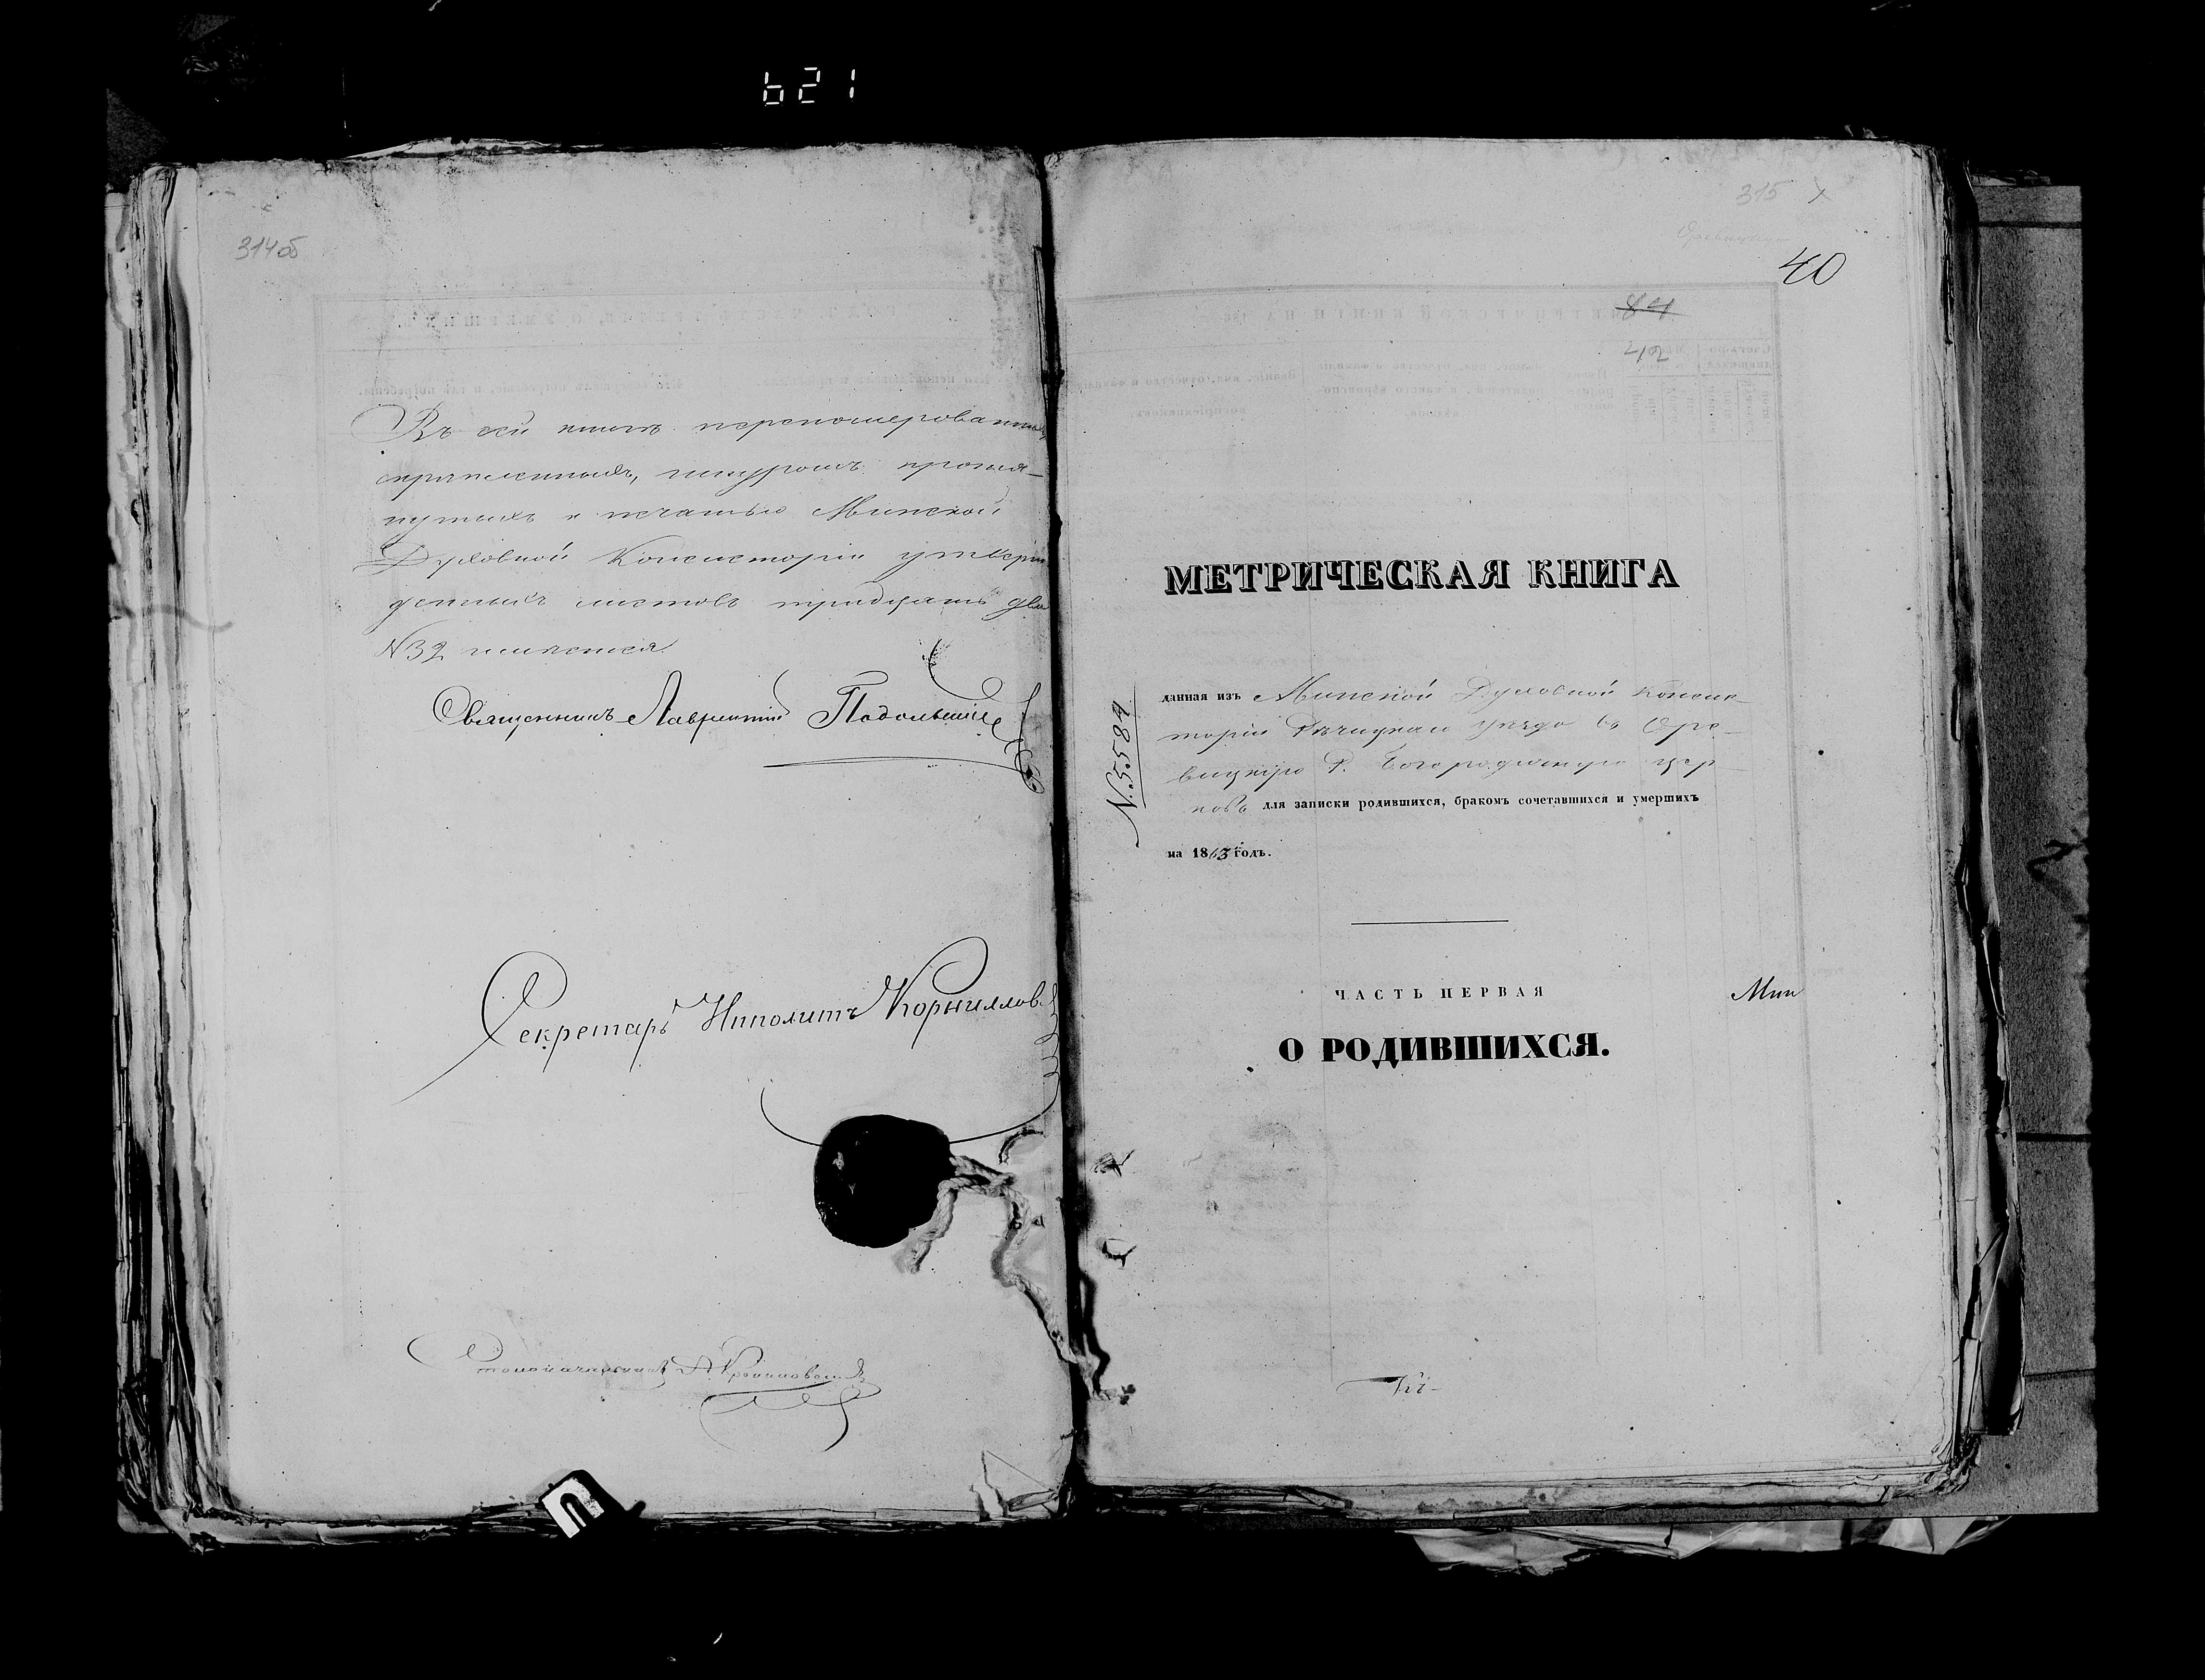 621
314об
Въ сей книгѣ перенумерованныхъ
скрѣпленныхъ, шнуромъ протя-
нутыхъ и печатью Минской
Духовной Консисторіи утверж
денныхъ листовъ тридцать два
№32 имѣется
Священникъ Лаврентій
Секретарь Ипполитъ Корниллов
Столоначальникъ
315
40
84
42
МЕТРИЧЕСКАЯ КНИГА
№5584
данная изъ Минской Духовной Консис-
торіи Рѣчицкаго уѣзда въ Оре-
вицкую Р. Богородичную цер-
ковь для записки родившихся, бракомъ сочетавшихся и умершихъ
на 1863 годъ.
ЧАСТЬ ПЕРВАЯ
Мин
О РОДИВШИХСЯ.